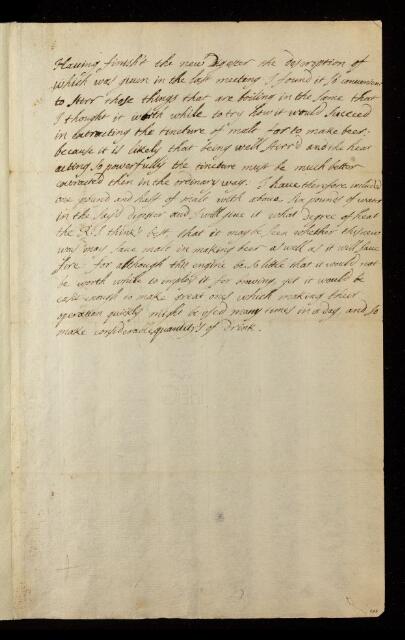 Having finish't the new Digester the description of
which was given in the last meeting I found it so convenient
to stirr those things that are boiling in the same that
I thought it worth while to try how it would succeed
in extracting the tincture of malt for to make beer;
because it is likely that being well stirr'd and the heat
acting so powerfully the tincture must be much better
extracted then in the ordinary way. I have therefore included
one pound and half of malt with about six pounds of water
in the sayd digester and I will give it what degree of heat
the R.S. thinks best, that it may be seen whether this new
way may save malt in making beer as well as it will save
fire for although this engine be so little that it would not
be worth while to imploy it for brewing, yet it would be
easie enough to make great ones which making their
operation quickly might be used many times in a day, and so
make considerable quantity's of drink.